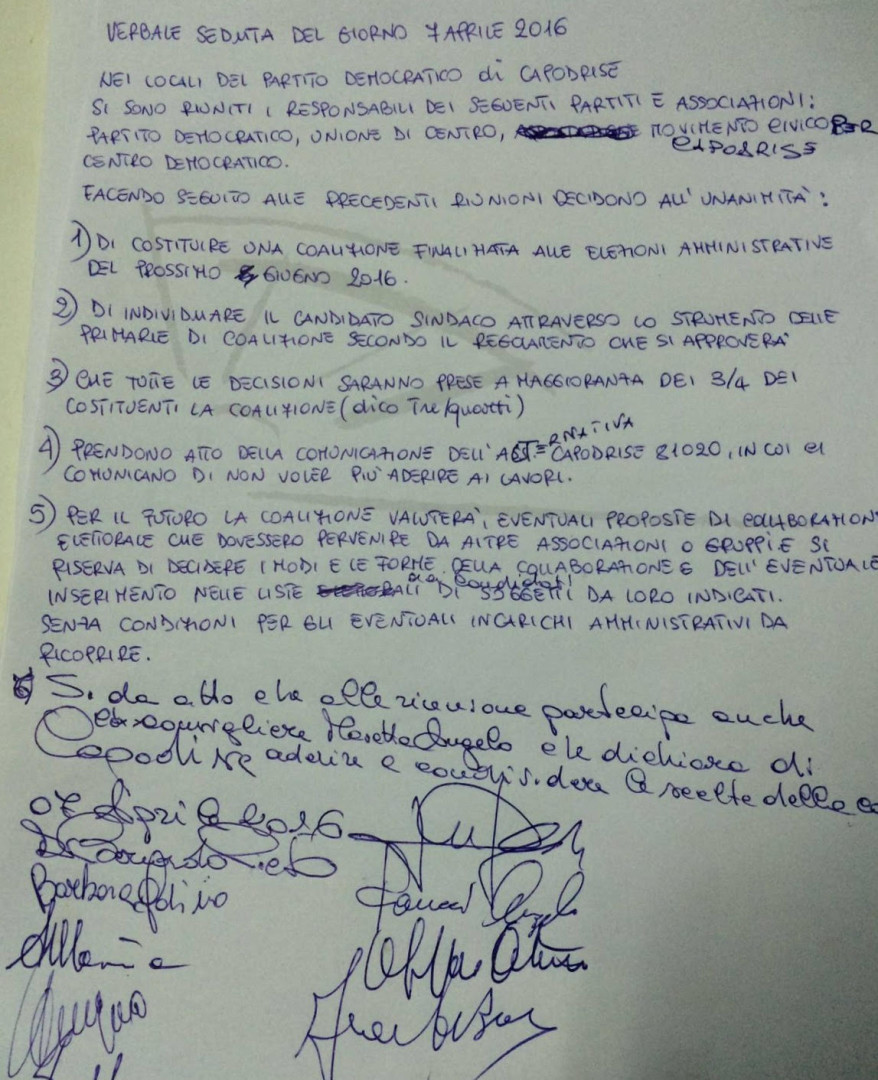 VERBALE SEDUTA DEL GIORNO 7 APRILE 2016
NEI LOCALI DEL PARTITO DEMOCRATICO di CAPODRISE
SI SONO RIUNITI I RESPONSABILI DEI SEGUENTI PARTITI E ASSOCIAZIONI:
PARTITO DEMOCRATICO, UNIONE DI CENTRO, MOVIMENTO CIVICO PER
CAPODRISE
CENTRO DEMOCRATICO.
FACENDO SEGUITO ALLE PRECEDENTI RIUNIONI DECIDONO ALL'UNANIMITA':
1) DI COSTITUIRE UNA COALIZIONE FINALIZZATA ALLE ELEZIONI AMMINISTRATIVE
DEL PROSSIMO GIUGNO 2016.
2) DI INDIVIDUARE IL CANDIDATO SINDACO ATTRAVERSO LO STRUMENTO DELLE
PRIMARIE DI COALIZIONE SECONDO IL REGOLAMENTO CHE SI APPROVERA'
3) CHE TUTTE LE DECISIONI SARANNO PRESE A MAGGIORANZA DEI 3/4 DEI
COSTITUENTI LA COALIZIONE (dico Tre/quarti)
4) PRENDONO ATTO DELLA COMUNICAZIONE DELL'ALTERNATIVA CAPODRISE 81020, IN CUI CI
COMUNICANO DI NON VOLER PIU' ADERIRE AI LAVORI.
5) PER IL FUTURO LA COALIZIONE VALUTERA', EVENTUALI PROPOSTE DI COLLABORAZION
ELETTORALE CHE DOVESSERO PERVENIRE DA ALTRE ASSOCIAZIONI O GRUPPI E SI
RISERVA DI DECIDERE I MODI E LE FORME DELLA COLLABORAZIONE E DELL'EVENTUALE
INSERIMENTO NELLE LISTE DI SOGGETTI DA LORO INDICATI.
SENZA CONDIZIONI PER GLI EVENTUALI INCARICHI AMMINISTRATIVI DA
RICOPRIRE.
6) Si da atto che alla riunione partecipa anche
Angelo che dichiara di
aderire e condividere le scelte della co
07 Aprile 2016
Barbara